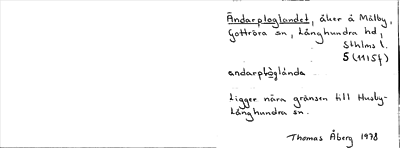 Ändarploglandet, åker å Målby,
Gottröra sn, Långhundra hd,
Sthlms l.
5 (1115f)
andarplòglánda
Ligger nära gränsen till Husby-
Långhundra sn.
Thomas Åberg 1978